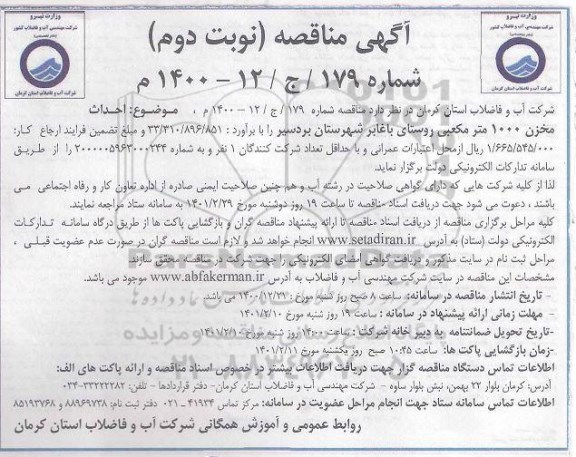 وزارت نیرو
شرکت مهندسی آب و فاضلاب کشور
شرکت آب و فاضلاب استان کرمان
وزارت نیرو
شرکت مهندسی آب و فاضلاب کشور
شرکت آب و فاضلاب استان کرمان
آگهی مناقصه (نوبت دوم)
شماره ۱۷۹ / ج / ۱۲ – ۱۴۰۰ م
شرکت آب و فاضلاب استان کرمان در نظر دارد مناقصه شماره ۱۷۹ / ج / ۱۲ - ۱۴۰۰ م ، موضوع: احداث
مخزن ۱۰۰۰ متر مکعبی روستای باغابر شهرستان بردسیر را با برآورد : ۳۳/۳۱۰/۸۹۶/۸۵۱ و مبلغ تضمین فرایند ارجاع کار:
۱/۶۶۵/۵۴۵/۰۰۰ ریال ازمحل اعتبارات عمرانی و با حداقل تعداد شرکت کنندگان ۱ نفر و به شماره ۲۰۰۰۰۰۵۹۶۳۰۰۰۲۴۴ را از طریق
سامانه تدارکات الکترونیکی دولت برگزار نماید.
لذا از کلیه شرکت هایی که دارای گواهی صلاحیت در رشته آب و هم چنین صلاحیت ایمنی صادره از اداره تعاون کار و رفاه اجتماعی می
باشند ، دعوت می شود جهت دریافت اسناد مناقصه تا ساعت ۱۹ روز دوشنبه مورخ ۱۴۰۱/۲/۲۹ به سامانه ستاد مراجعه نمایند.
کلیه مراحل برگزاری مناقصه از دریافت اسناد مناقصه تا ارائه پیشنهاد مناقصه گران و بازگشایی پاکت ها از طریق درگاه سامانه تدارکات
الکترونیکی دولت (ستاد) به آدرس www.setadiran.ir انجام خواهد شد و لازم است مناقصه گران در صورت عدم عضویت قبلی ،
مراحل ثبت نام در سایت مذکور و دریافت گواهی امضای الکترونیکی را جهت شرکت در مناقصه محقق سازند.
مشخصات این مناقصه در سایت شرکت مهندسی آب و فاضلاب به آدرس www.abfakerman.ir موجود می باشد.
- تاریخ انتشار مناقصه در سامانه: ساعت ۸ صبح روز شنبه مورخ می باشد.
- مهلت زمانی ارائه پیشنهاد در سامانه : ساعت ۱۹ روز شنبه مورخ ۱۴۰۱/۲/۱۰
-تاریخ تحویل ضمانتنامه به دبیر خانه شرکت : ساعت ۱۴:۰۰ روز شنبه مورخ
-زمان بازگشایی پاکت ها: ساعت ۱۰:۴۵ صبح روز یکشنبه مورخ ۱۴۰۱/۲/۱۱
اطلاعات تماس دستگاه مناقصه گزار جهت دریافت اطلاعات بیشتر در خصوص اسناد مناقصه و ارائه پاکت های الف:
آدرس: کرمان بلوار ۲۲ بهمن، نبش بلوار ساوه – شرکت مهندسی آب و فاضلاب استان کرمان- دفتر قراردادها – تلفن: ۳۳۲۲۲۲۸۲-۰۳۴
اطلاعات تماس سامانه ستاد جهت انجام مراحل عضویت در سامانه: مرکز تماس ۴۱۹۳۴ - ۰۲۱ دفتر ثبت نام: ۸۸۹۶۹۷۳۸ و ۸۵۱۹۳۷۶۸
روابط عمومی و آموزش همگانی شرکت آب و فاضلاب استان کرمان